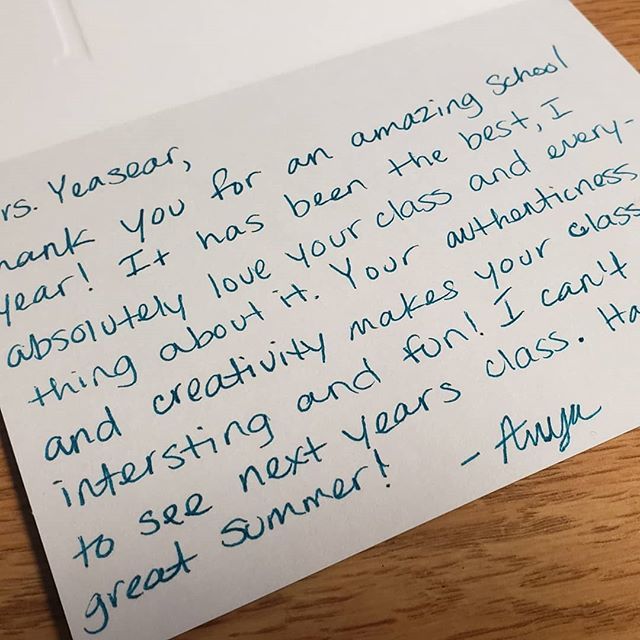 rs. Yeasear,
hank you for an amazing school
year! It has been the best, I
absolutely love your class and every-
thing about it. Your authenticness
and creativity makes your class
intersting and fun! I can't
to see next years class. Ha
great summer! - Anya